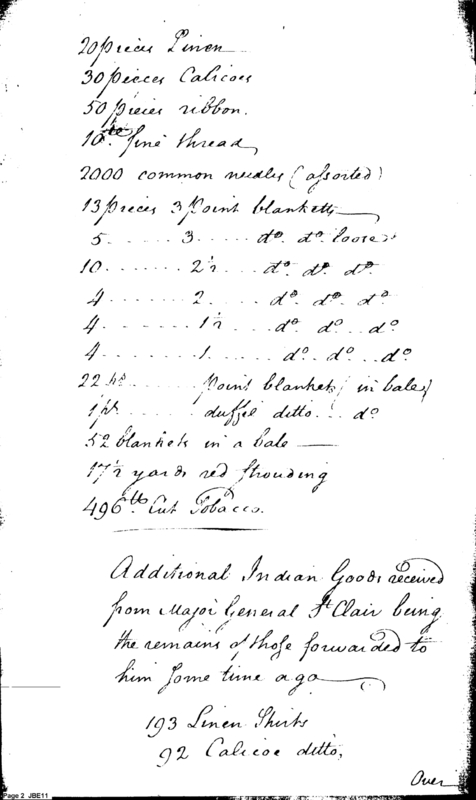 20 pieces Linen
30 pieces Calicoes
50 pieces ribbon.
10 lb. fine thread
2000 common needles (assorted)
13 pieces 3 Point blanketts
5 ..... 3 ..... do. do. loose
10 ....... 2½ ... do. do. do.
4 ........ 2 .... do. do. do
4 ....... 1½ .... do. do... do
4 ....... 1. .... do.. do... do
22 ps. ...... Point blankets (in bales)
1 pr. ...... duffil ditto... do
52 blankets in a bale —
17½ yards red Strouding
496 lb Cut Tobacco.
Additional Indian Goods received
from Major General St Clair being
the remains of those forwarded to
him some time ago
193 Linen Shirts
92 Calicoe ditto,
Over
Page 2 JBE11